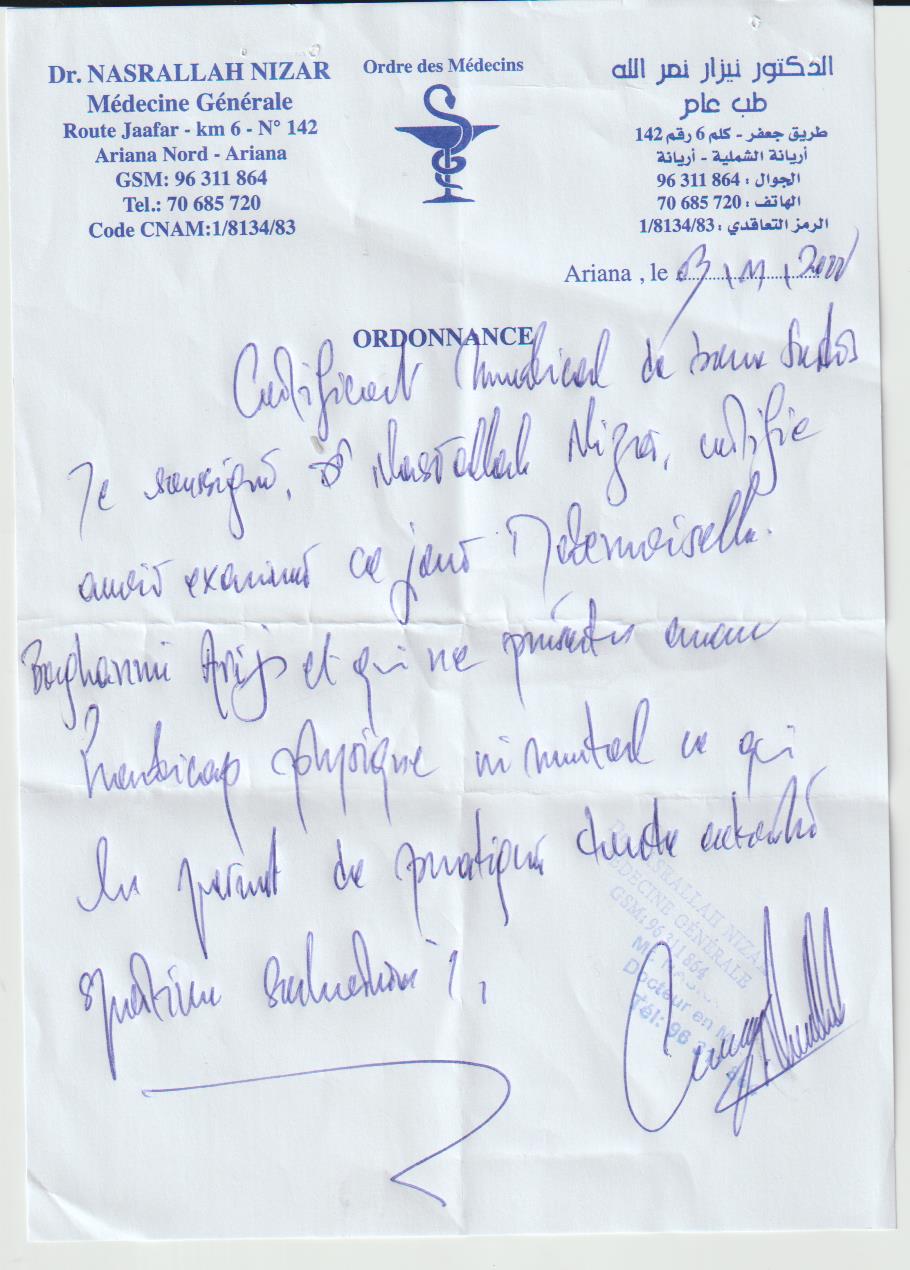 Dr. NASRALLAH NIZAR
Médecine Générale
Route Jaafar - km 6 - N° 142
Ariana Nord - Ariana
GSM: 96 311 864
Tel.: 70 685 720
Code CNAM:1/8134/83
Ordre des Médecins
الدكتور نيزار نصر الله
طب عام
طريق جعفر - كلم 6 رقم 142
أريانة الشملية - أريانة
الجوال : 864 311 96
الهاتف : 720 685 70
الرمز التعاقدي : 1/8134/83
Ariana , le
ORDONNANCE
Certificat médical de bonne
Je soussigné, Dr Nasrallah Nizar, certifie
avoir examiné ce jour Mademoiselle
Arij et qui ne présente aucun
handicap physique ni mental ce qui
lui permet de pratiquer
Dr NASRALLAH NIZAR
MEDECINE GÉNÉRALE
GSM: 96 311 864
Docteur en
Tél: 96